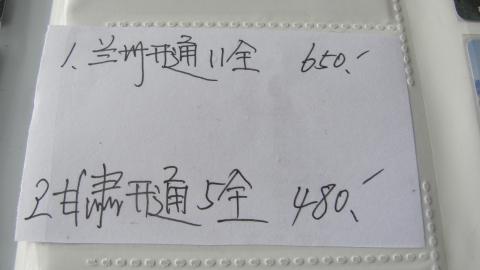 1、兰州开通11全 650.
2.甘肃开通5全 480.